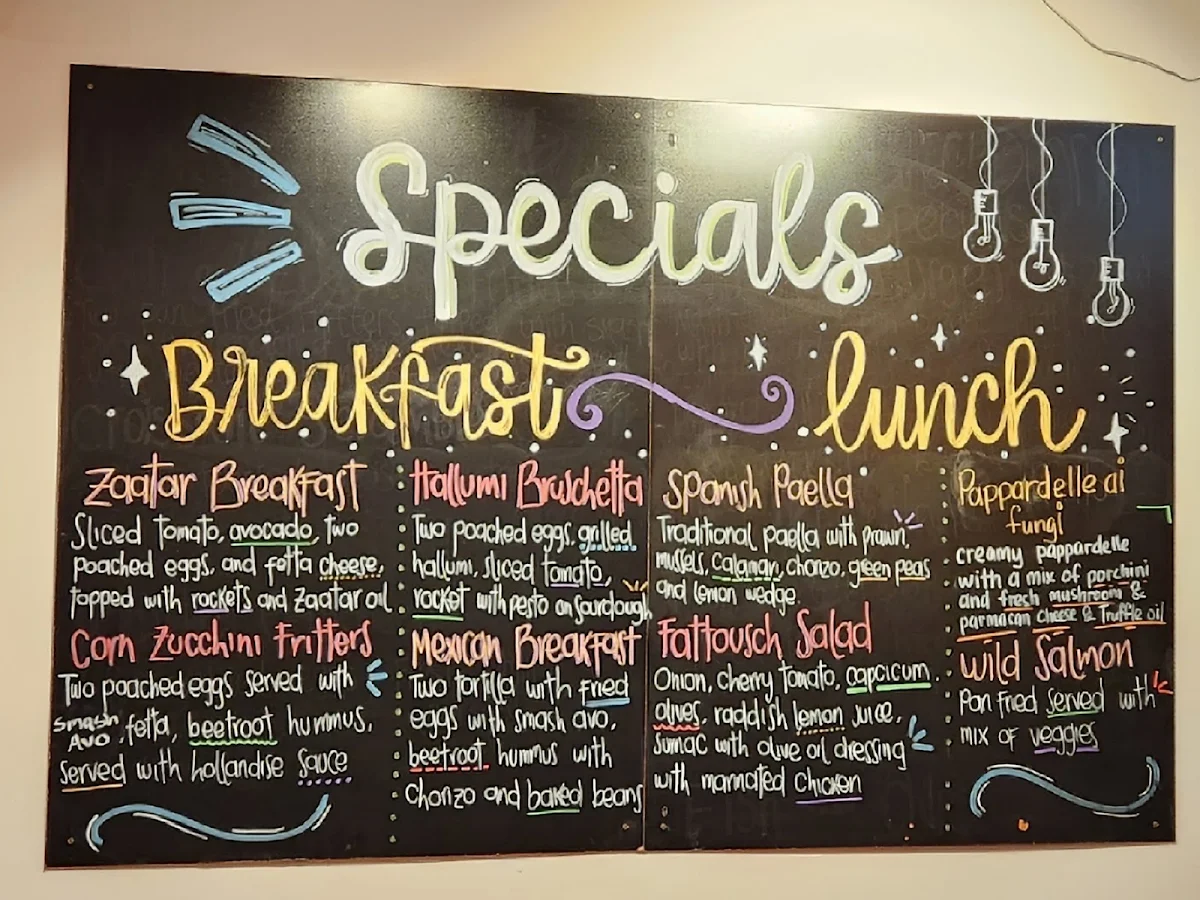 Specials
Breakfast
Zaatar Breakfast
Sliced tomato, avocado, two
poached eggs, and fetta cheese,
topped with rockets and zaatar oil
Corn Zucchini Fritters
Two poached eggs served with
smash
Avo, fetta, beetroot hummus,
served with hollandise sauce
Hallumi Bruschetta
Two poached eggs, grilled
hallumi, sliced tomato,
rocket with pesto on sourdough
Mexican Breakfast
Two tortilla with fried
eggs with smash avo,
beetroot hummus with
chorizo and baked beans
lunch
Spanish Paella
Traditional paella with prawn,
mussels, calamari, chorizo, green peas
and lemon wedge.
Fattousch Salad
Onion, cherry tomato, capcicum,
olives, raddish lemon juice,
sumac with olive oil dressing
with marinated chicken
Pappardelle ai
fungi
creamy pappardelle
with a mix of porchini
and fresh mushroom &
parmasan cheese & Truffle oil
Wild Salmon
Pan fried served with
mix of veggies